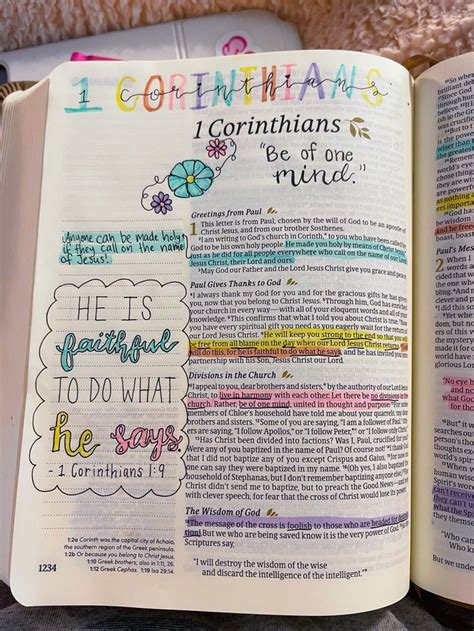 1 CORINTHIANS
Corinthians
1 Corinthians
"Be of one
mind."
Greetings from Paul
1 This letter is from Paul, chosen by the will of God to be an apostle
of Christ Jesus, and from our brother Sosthenes.
²I am writing to God's church in Corinth,* to you who have been called
by God to be his own holy people. He made you holy by means of Christ
Jesus,* just as he did for all people everywhere who call on the name of our
Lord Jesus Christ, their Lord and ours.
³May God our Father and the Lord Jesus Christ give you grace and peace.
Anyone can be made holy
if they call on the name
of Jesus!
Paul Gives Thanks to God
⁴I always thank my God for you and for the gracious gifts he has given
you, now that you belong to Christ Jesus. ⁵Through him, God has enriched
your church in every way—with all of your eloquent words and all of your
knowledge. ⁶This confirms that what I told you about Christ is true. ⁷Now
you have every spiritual gift you need as you eagerly wait for the return
of our Lord Jesus Christ. ⁸He will keep you strong to the end so that you will
be free from all blame on the day when our Lord Jesus Christ returns. ⁹God
will do this, for he is faithful to do what he says, and he has invited you into
partnership with his Son, Jesus Christ our Lord.
HE IS
faithful
TO DO WHAT
he says.
- 1 Corinthians 1:9
Divisions in the Church
¹⁰I appeal to you, dear brothers and sisters,* by the authority of our Lord Jesus
Christ, to live in harmony with each other. Let there be no divisions in the
church. Rather, be of one mind, united in thought and purpose. ¹¹For some
members of Chloe's household have told me about your quarrels, my dear
brothers and sisters. ¹²Some of you are saying, "I am a follower of Paul." Others
are saying, "I follow Apollos," or "I follow Peter,*" or "I follow only Christ."
¹³Has Christ been divided into factions? Was I, Paul, crucified for you?
Were any of you baptized in the name of Paul? Of course not! ¹⁴I thank God
that I did not baptize any of you except Crispus and Gaius, ¹⁵for now no one
can say they were baptized in my name. ¹⁶(Oh yes, I also baptized the
household of Stephanas, but I don't remember baptizing anyone else.) ¹⁷For
Christ didn't send me to baptize, but to preach the Good News—and not
with clever speech, for fear that the cross of Christ would lose its power.
The Wisdom of God
¹⁸The message of the cross is foolish to those who are headed for destruc-
tion! But we who are being saved know it is the very power of God. ¹⁹As the
Scriptures say,
"I will destroy the wisdom of the wise
and discard the intelligence of the intelligent."*
1:2a Corinth was the capital city of Achaia,
the southern region of the Greek peninsula.
1:2b Or because you belong to Christ Jesus.
1:10 Greek brothers; also in 1:11, 26.
1:12 Greek Cephas. 1:19 Isa 29:14.
1234